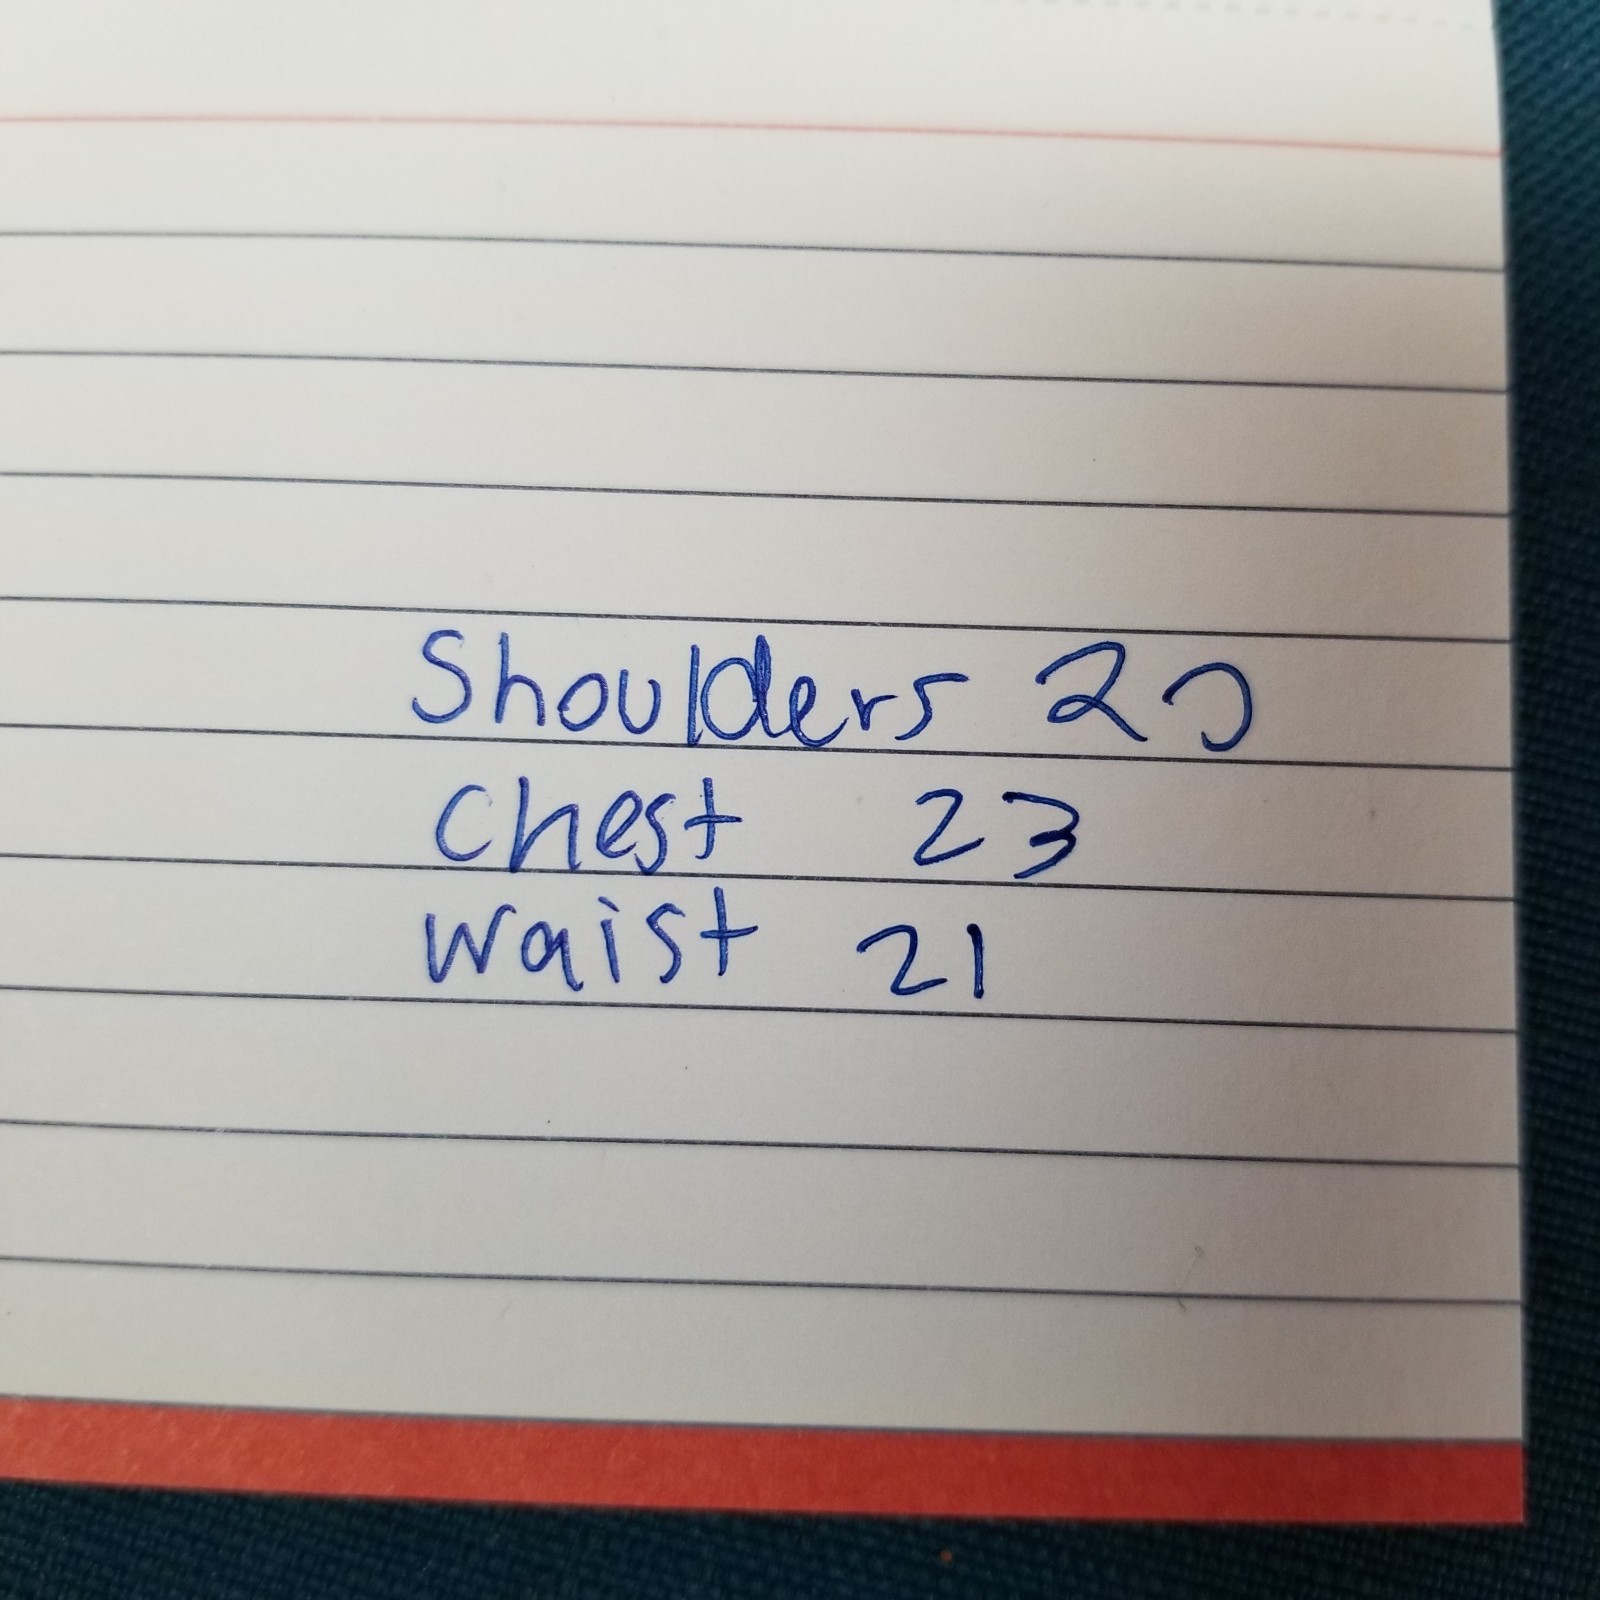 Shoulders 20
Chest 23
Waist 21